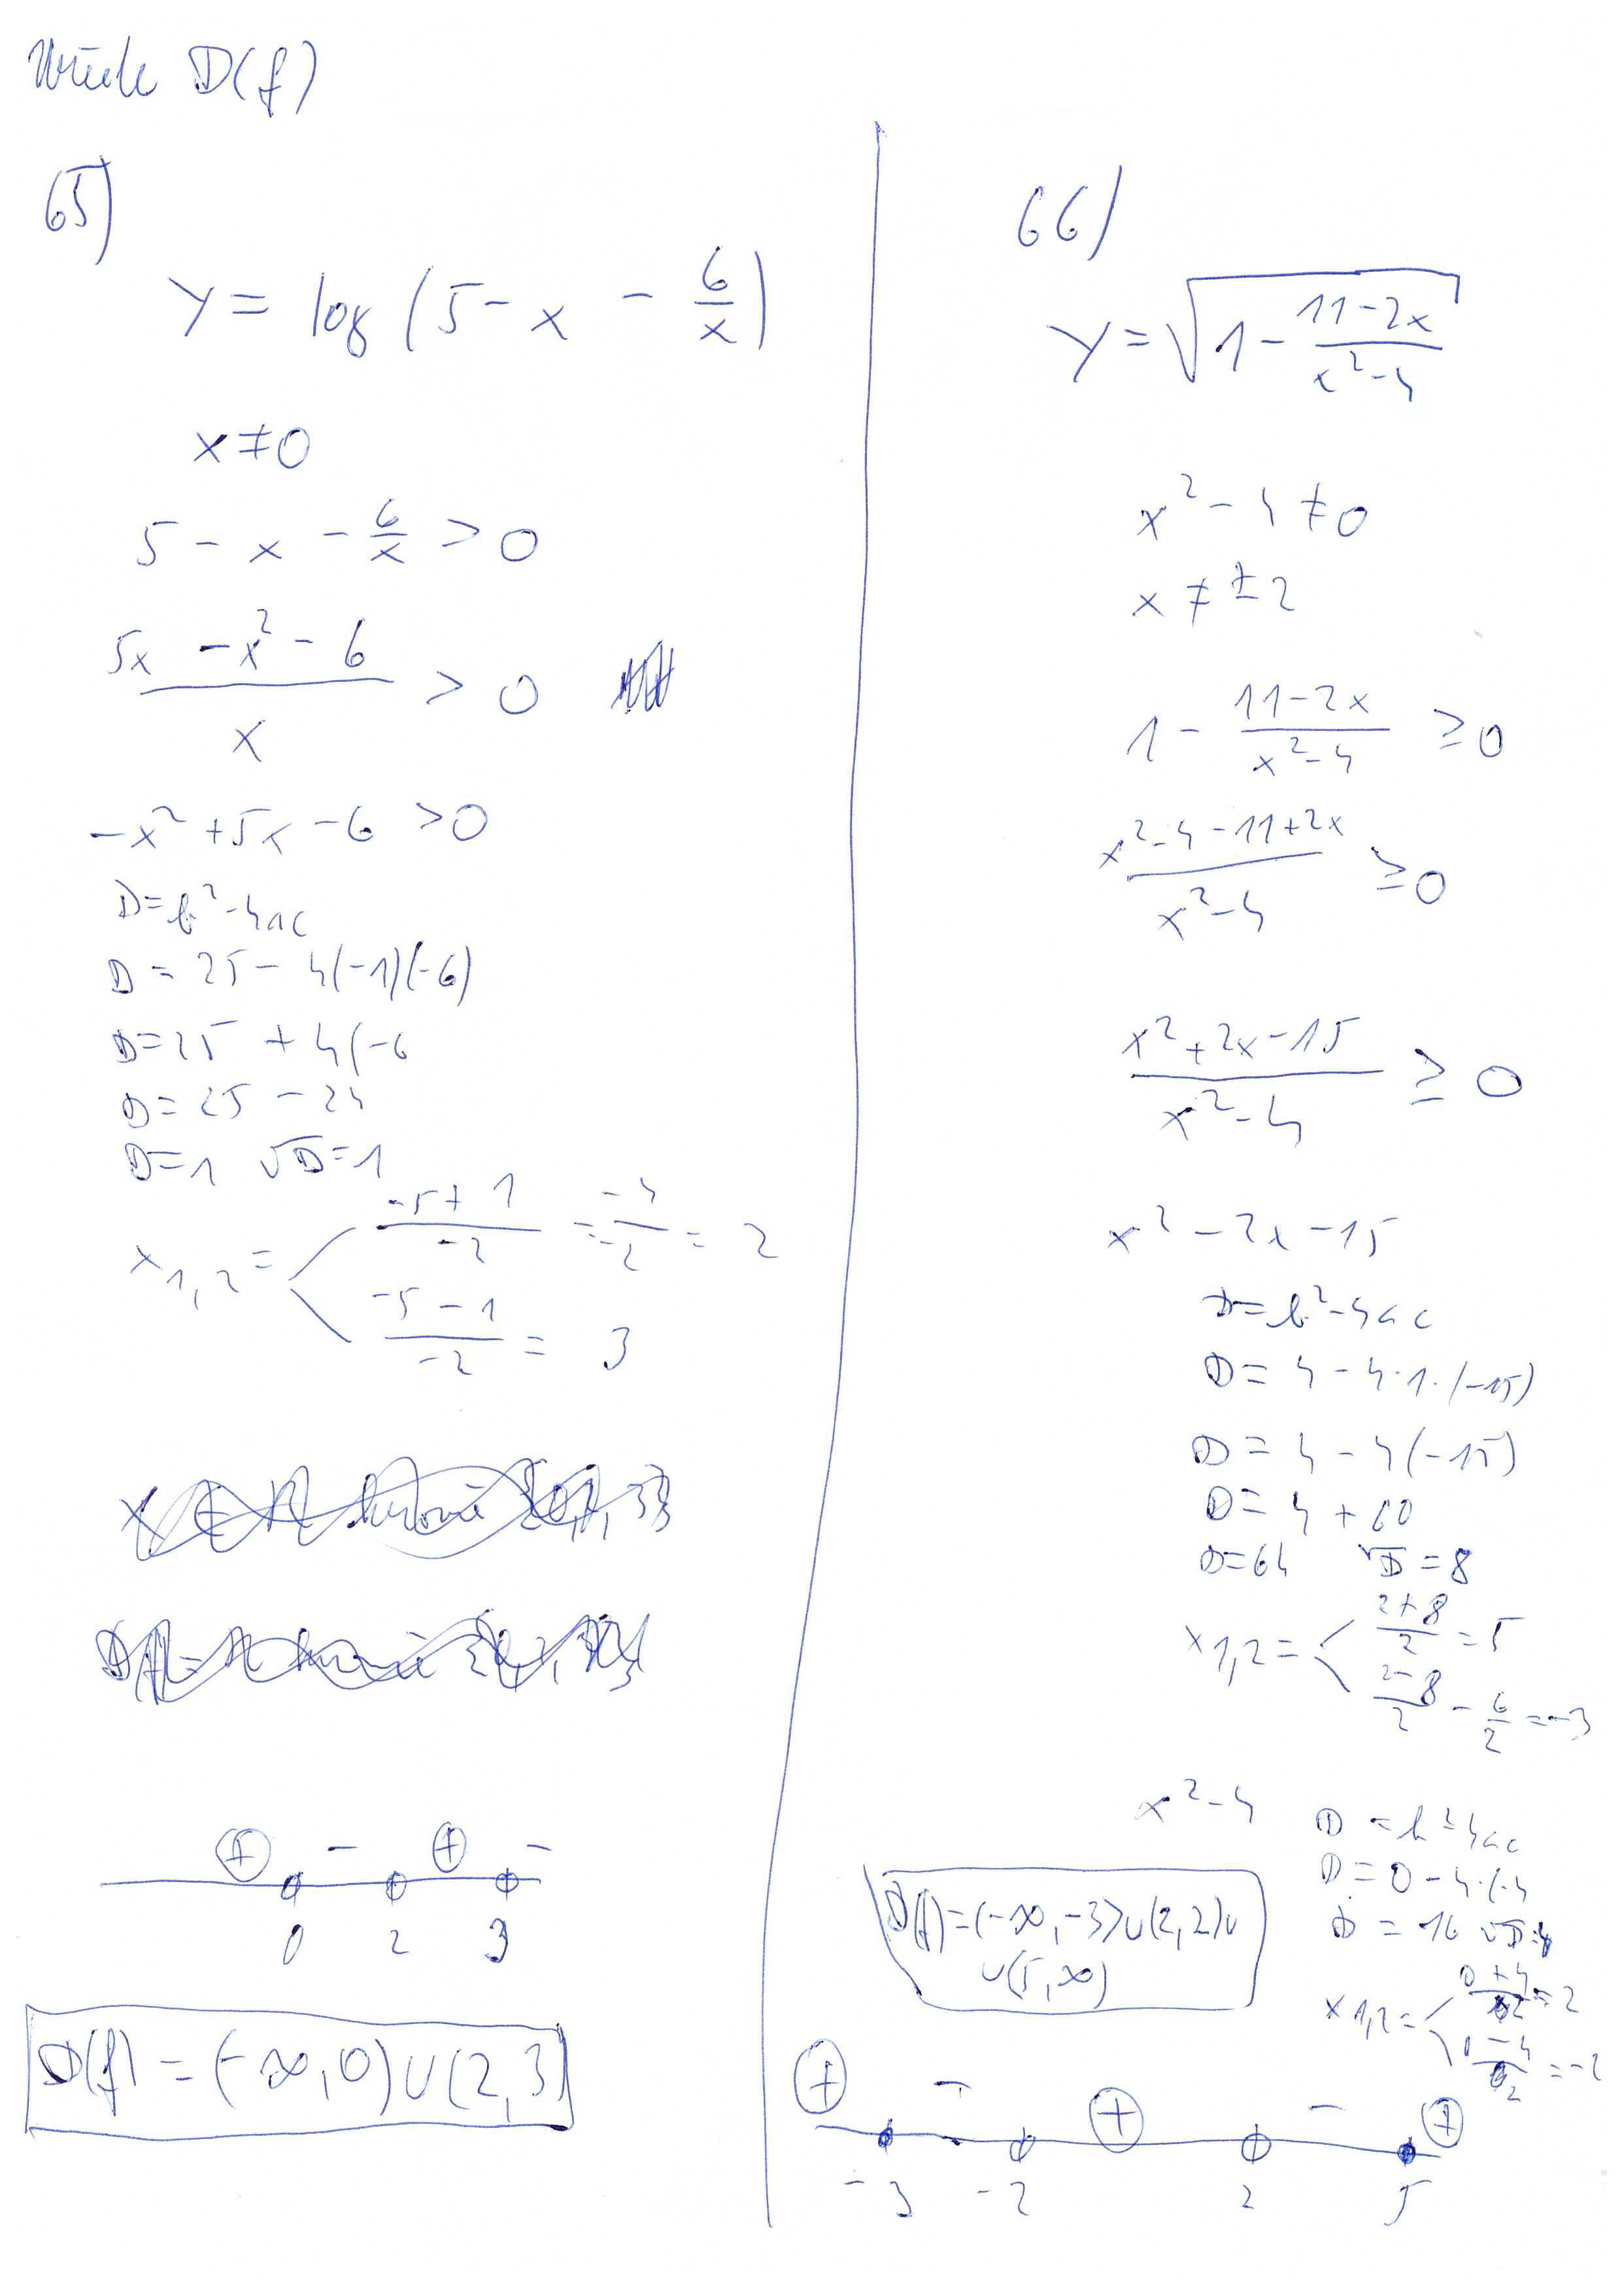 D(f)
65)
y = log (5 - x - 6/x)
x ≠ 0
5 - x - 6/x > 0
(5x - x² - 6)/x > 0
-x² + 5x - 6 > 0
D = b² - 4ac
D = 25 - 4(-1)(-6)
D = 25 + 4(-6
D = 25 - 24
D = 1 √D = 1
x1,2 = (-5 + 1)/-2 = -4/-2 = 2
(-5 - 1)/-2 = 3
+ - + -
0 2 3
D(f) = (-∞, 0) ∪ (2, 3)
66)
y = √(1 - (11 - 2x)/(x² - 4))
x² - 4 ≠ 0
x ≠ ±2
1 - (11 - 2x)/(x² - 4) ≥ 0
(x² - 4 - 11 + 2x)/(x² - 4) ≥ 0
(x² + 2x - 15)/(x² - 4) ≥ 0
x² - 2x - 15
D = b² - 4ac
D = 4 - 4·1·(-15)
D = 4 - 4(-15)
D = 4 + 60
D = 64 √D = 8
x1,2 = (2 + 8)/2 = 5
(2 - 8)/2 - 6/2 = -3
x² - 4
D = b² - 4ac
D = 0 - 4·(-4
D = 16 √D = 4
x1,2 = (0 + 4)/2 = 2
(0 - 4)/2 = -2
D(f) = (-∞, -3⟩ ∪ (2, 2) ∪
∪ (5, ∞)
+ - + - +
-3 -2 2 5